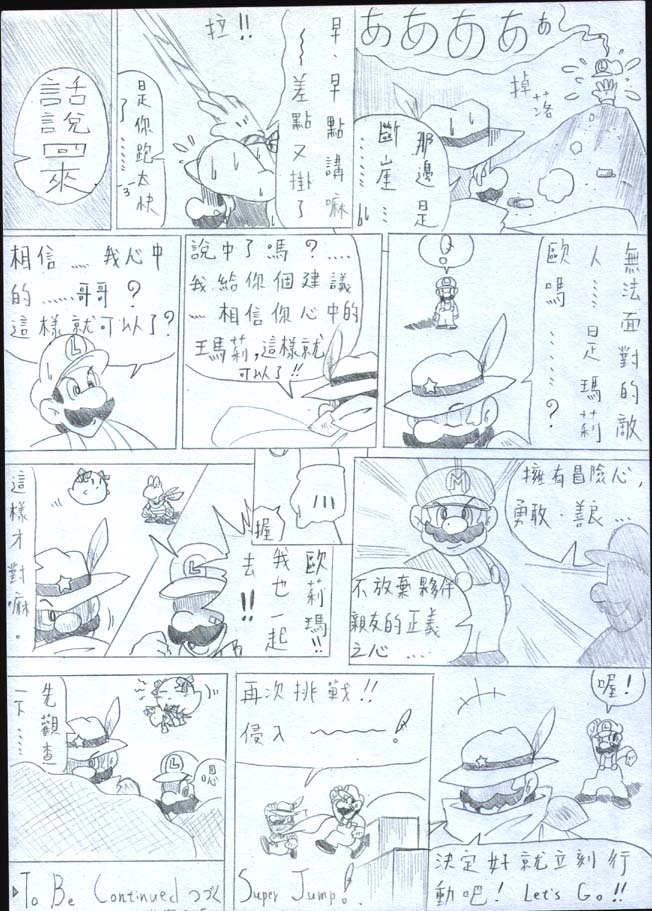 ああああぁ
掉落
那邊是
斷崖……
早、早點講嘛
～差點又掛了
拉!!
是你跑太快
了……
話說回來
無法面對的敵
人……是瑪莉
歐嗎……?
說中了嗎?……
我給你個建議
……相信你心中的
王馬莉,這樣就
可以了!!
相信……我心中
的……哥哥?
這樣就可以了?
L
擁有冒險心,
勇敢、善良…
M
不放棄夥伴
親友的正義
之心……
握
歐莉瑪!!
我也一起
去!!
L
這樣才對嘛。
喔!
決定好就立刻行
動吧! Let's Go!!
再次挑戰!!
侵入～～!
Super Jump!
先觀查
一下……
嗯
L
To Be Continued つづく